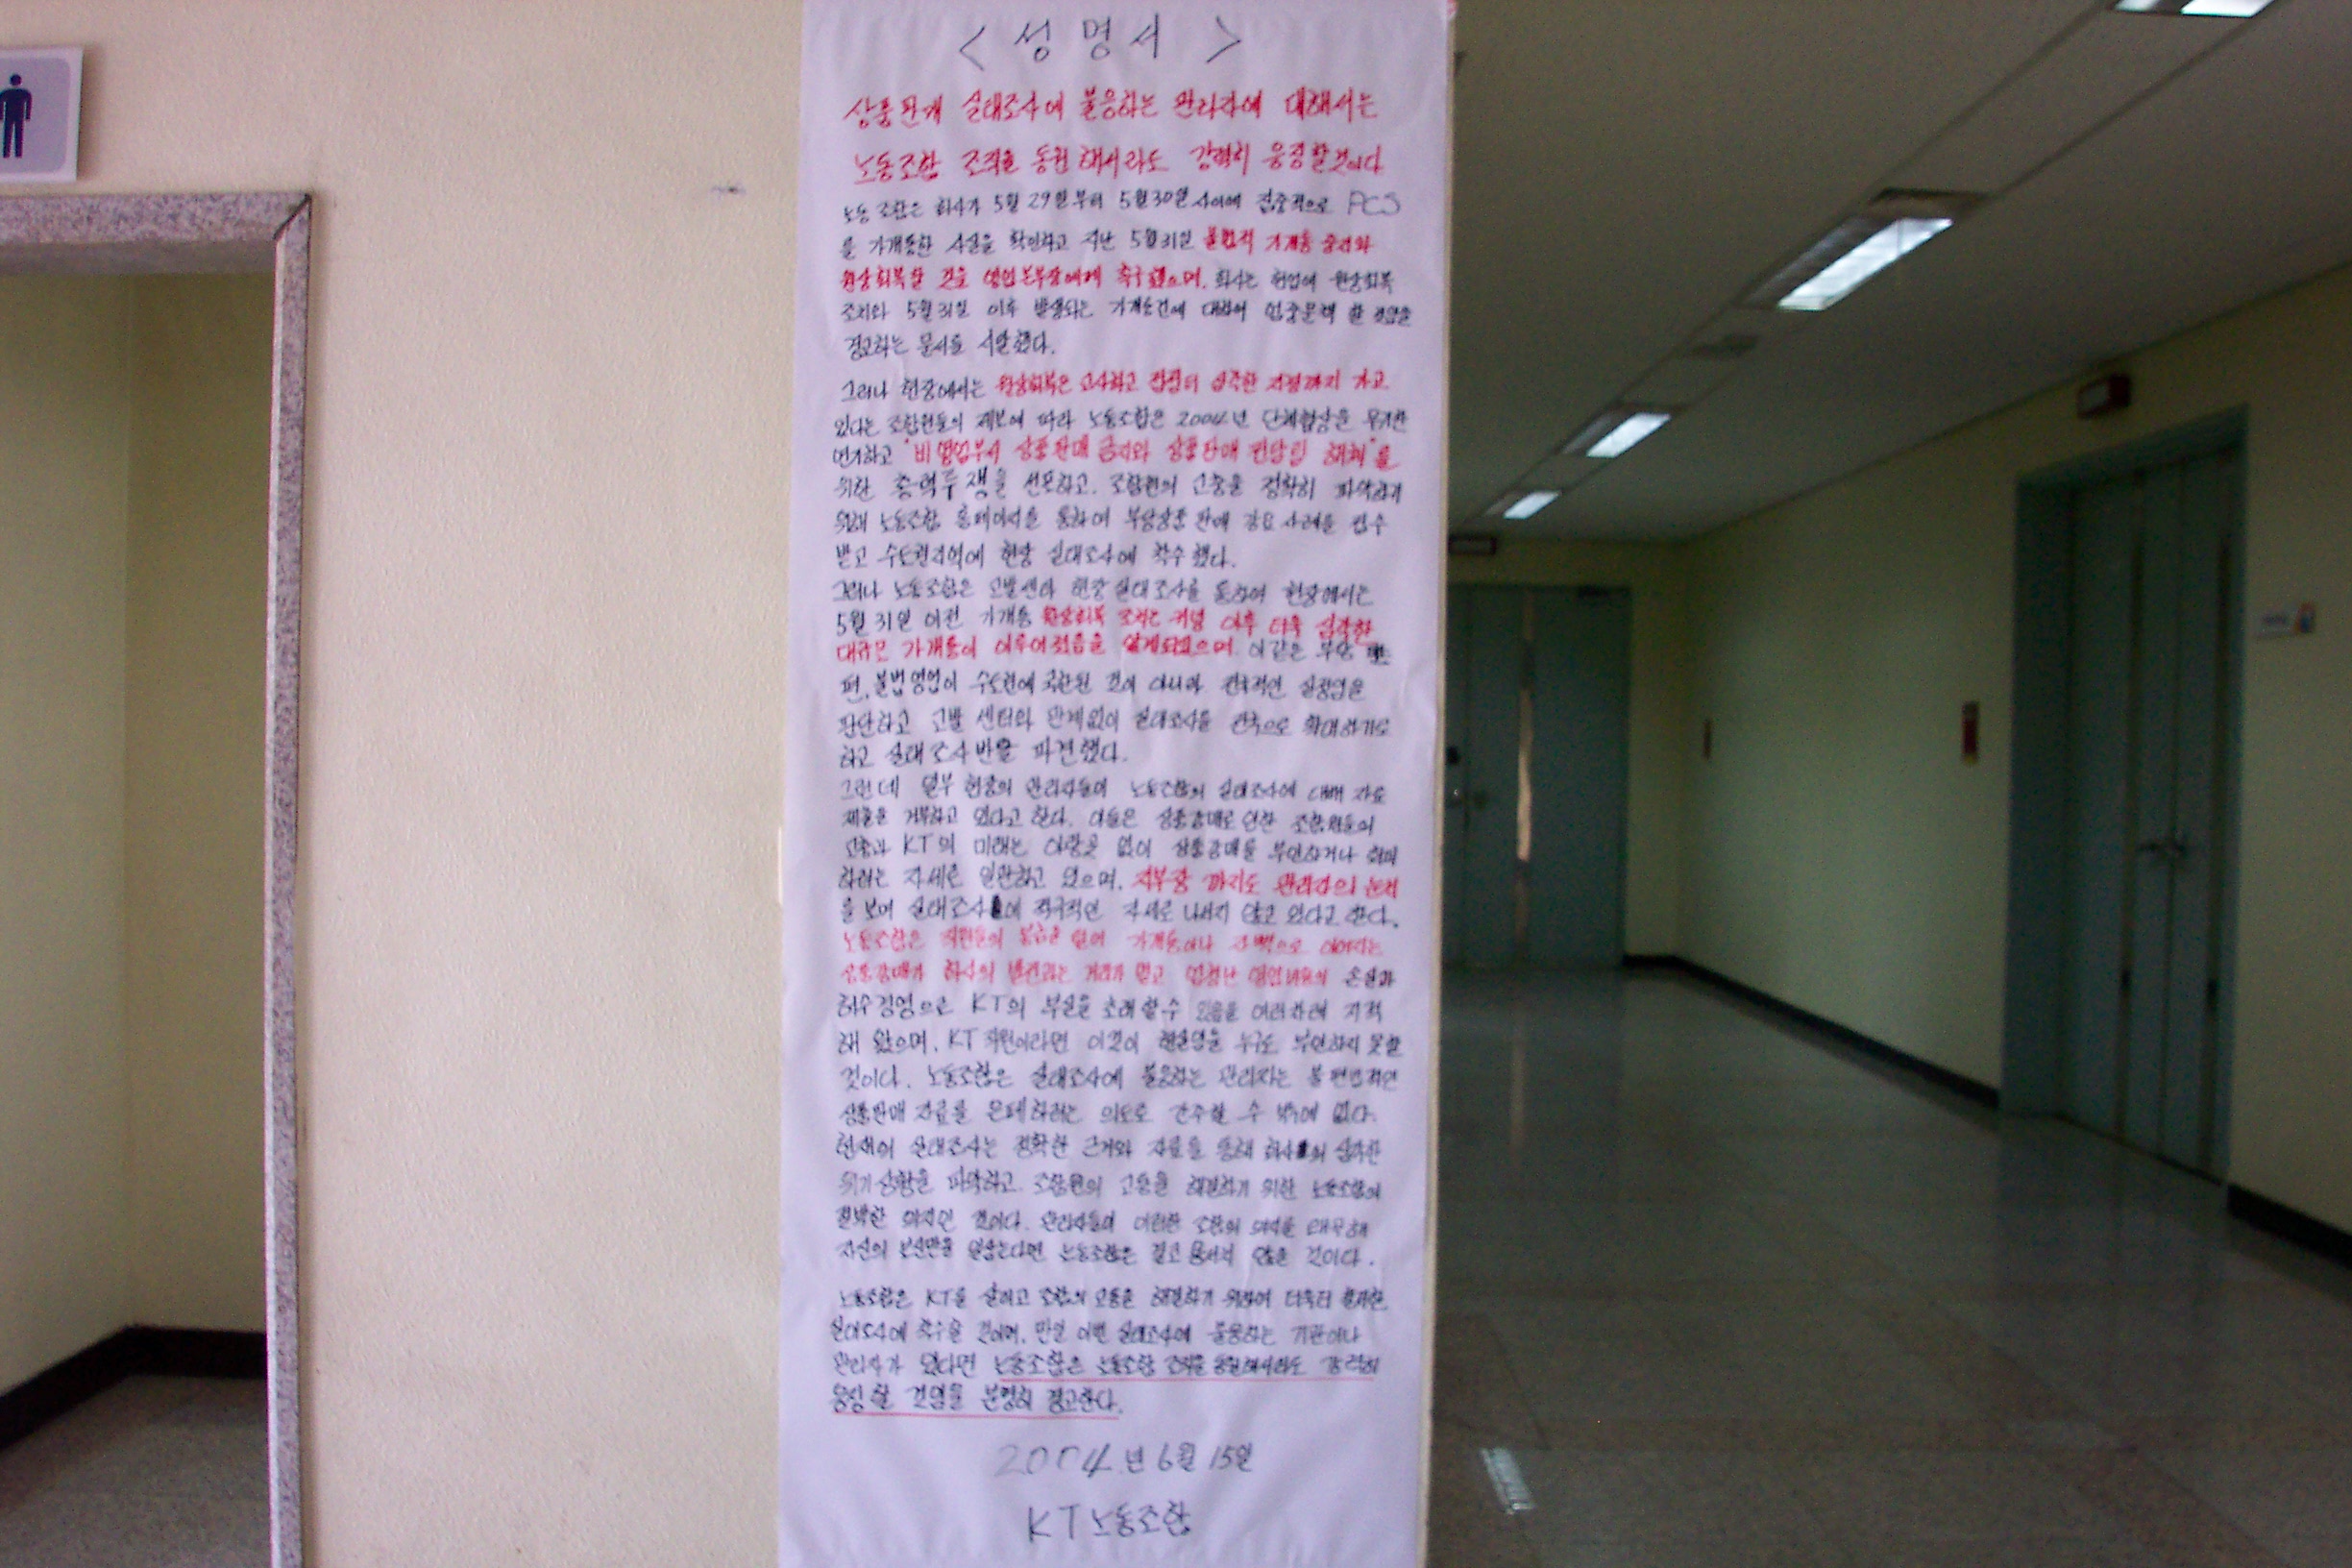 < 성 명 서 >
상품판매 실태조사에 불응하는 관리자에 대해서는
노동조합 조직을 동원해서라도 강력히 응징할것이다
노동조합은 회사가 5월 29일부터 5월30일 사이에 집중적으로 PCS
를 가개통한 사실을 확인하고 지난 5월31일 불법적 가개통 중지와
원상회복할 것을 영업본부장에게 촉구했으며, 회사는 현업에 원상회복
조치와 5월 31일 이후 발생되는 가개통건에 대하여 엄중문책 할 것임을
경고하는 문서를 시달했다.
그러나 현장에서는 원상회복은 고사하고 점점더 심각한 지경까지 가고
있다는 조합원들의 제보에 따라 노동조합은 2004년 단체협상을 무기한
연기하고 "비영업부서 상품판매 금지와 상품판매 전담팀 해체"를
위한 총력투쟁을 선포하고, 조합원의 고충을 정확히 파악하기
위해 노동조합 홈페이지를 통하여 부당상품 판매 강요 사례를 접수
받고 수도권지역에 현장 실태조사에 착수했다.
그러나 노동조합은 고발센타 현장실태조사를 통하여 현장에서는
5월 31일 이전 가개통 원상회복 조치는 커녕 이후 더욱 심각한
대규모 가개통이 이루어졌음을 알게되었으며, 이같은 부당
편, 불법영업이 수도권에 국한된 것이 아니라 전국적인 실정임을
판단하고 고발 센터와 관계없이 실태조사를 전국으로 확대하기로
하고 실태조사반을 파견했다.
그런데 일부 현장의 관리자들이 노동조합의 실태조사에 대해 자료
제출을 거부하고 있다고 한다. 이들은 상품강매로 인한 조합원들의
고충과 KT의 미래는 아랑곳 없이 상품강매를 부인하거나 회피
하려는 자세로 일관하고 있으며, 지부장 까지도 관리자의 눈치
을 보며 실태조사에 적극적인 자세로 나서지 않고 있다고 한다.
노동조합은 직원들의 봉급을 털어 가개통이나 자뻑으로 이어지는
상품강매가 회사의 발전과는 거리가 멀고 엄청난 영업비용의 손실과
허수경영으로 KT의 부실을 초래할 수 있음을 여러차례 지적
해 왔으며, KT 직원이라면 이것이 현실임을 누구도 부인하지 못할
것이다. 노동조합은 실태조사에 불응하는 관리자는 불편법적인
상품판매 자료를 은폐하려는 의도로 간주할 수 밖에 없다.
현재의 실태조사는 정확한 근거와 자료를 통해 회사의 심각한
위기상황을 파악하고, 조합원의 고충을 해결하기 위한 노동조합의
절박한 의지인 것이다. 관리자들이 이러한 조합의 의지를 왜곡해
자신의 보신만을 일삼는다면 노동조합은 결코 용서치 않을 것이다.
노동조합은 KT를 살리고 조합의 고통을 해결하기 위하여 더욱더 철저한
실태조사에 착수할 것이며, 만일 이번 실태조사에 불응하는 기관이나
관리자가 있다면 노동조합은 노동조합 조직을 동원해서라도 강력히
응징할 것임을 분명히 경고한다.
2004년 6월 15일
KT노동조합